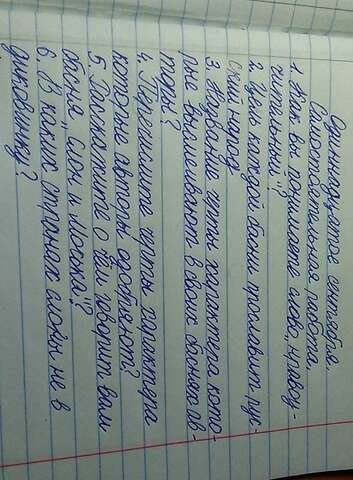 Одиннадцатое сентября.
Самостоятельная работа.
1. Как вы понимаете слово "нраво-
учительный"?
2. Цель каждой басни прославить рус-
ский народ
3. Назовите черты характера кото-
рые высмеивают в своих баснях ав-
торы?
4. Перепишите черты характера
которые авторы одобряют?
5. Расскажите о чём говорит вам
басня "Слон и Моська"?
6. В каких странах слоны не в
диковинку?